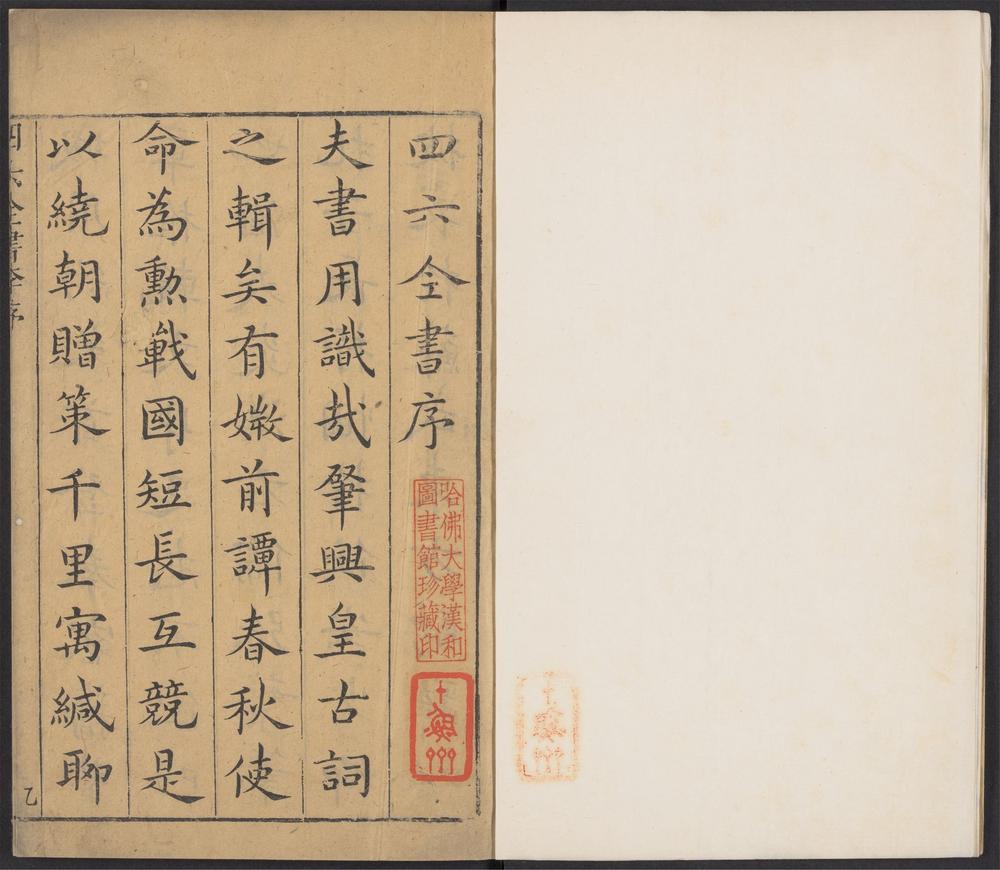 四六全書序
夫書用識哉肇興皇古詞
之輯矣有媺前譚春秋使
命為勲戰國短長互競是
以繞朝贈策千里寓緘聊
四六全書序
乙
哈佛大學漢和
圖書館珍藏印